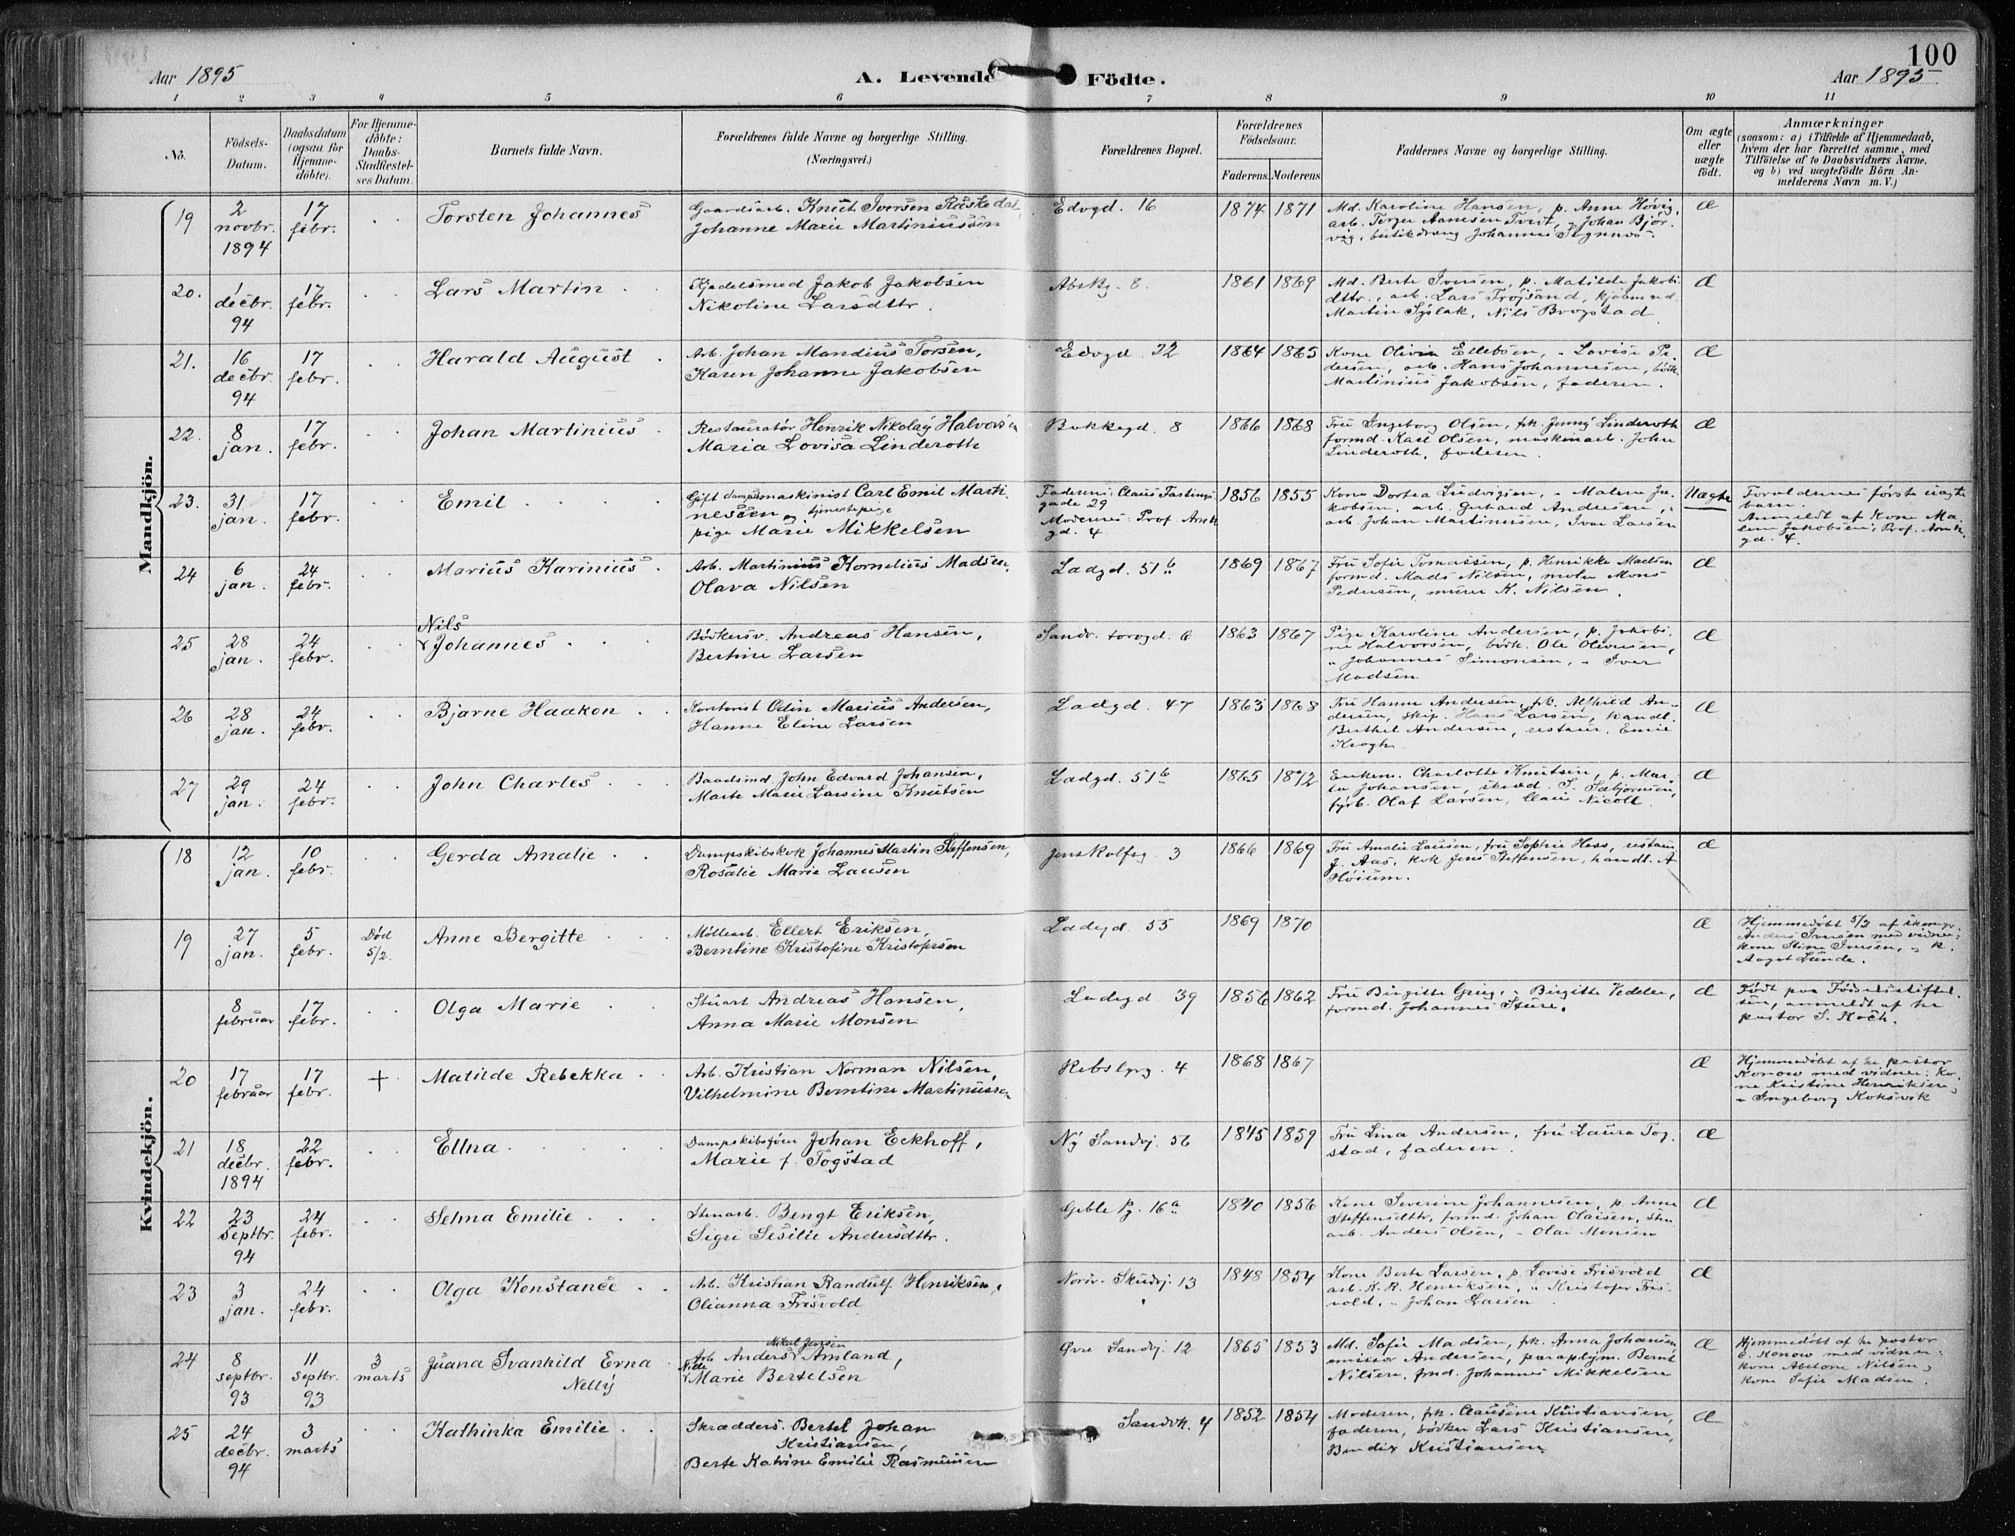 100
Aar 1895
A. Levende Födte.
Aar 1895
1 2 3 4 5 6 7 8 9 10 11
No.
Födsels-Datum.
Daabsdatum (ogsaa for Hjemme-döbte).
For Hjemme-döbte: Daabs-Stadfæstel-ses Datum.
Barnets fulde Navn.
Forældrenes fulde Navne og borgerlige Stilling.
(Næringsvei.)
Forældrenes Bopæl.
Forældrenes Födselsaar.
Faderens. Moderens.
Faddernes Navne og borgerlige Stilling.
Om ægte eller uægte födt.
Anmærkninger
(saasom: a) i Tilfælde af Hjemmedaab, hvem der har forrettet samme, med Tilföielse af to Daabsvidners Navne, og b) ved uægtefödte Börn An-melderens Navn m. V.)
Mandkjön.
19 2 novbr. 1894 17 febr. Torsten Johannes
Gaardsarb. Knut Iversen
Johanne Marie Martiniussen
Edvgd. 16 1874 1871
Md. Karoline Hansen, p. Anne Høvig,
arb. Terger Aamesen Tveit, Johan Bjør-
vig, butikdreng Johannes Sognnes.
Æ
20. 1 decbr. 94 17 febr. Lars Martin
Kjedelsmed Jakob Jakobsen
Nikoline Larsdttr.
8. 1861 1869
Md. Berte Iversen, p. Matilde Jakobs-
dttr., arb. Lars Trøjsand, kjøbmnd.
Martin Syslak, Nils Brogstad
Æ
21. 16 decbr. 94 17 febr. Harald August
Arb. Johan Mandius Torsen,
Karen Johanne Jakobsen
Edvgd. 32 1864 1865
Kone Olivia Ellebsen, " Lovise Pe-
dersen, arb. Hans Johannesen,
Martinius Jakobsen, faderen.
Æ
22. 8 jan. 17 febr. Johan Martinius
Restauratør Henrik Nikolay Halvorsen
Maria Lovisa Linderoth
Bakkegd. 8 1866 1868
Fru Ingeborg Olsen, frk. Jenny Linderoth
formd. Karl Olsen, maskinarb. John
Linderoth, faderen.
Æ
23. 31 jan. 17 febr. Emil
Gift dampsmaskinist Carl Emil Marti-
nessen og tjenestepige
pige Marie Mikkelsen
Faderens: Claus Fastings
gade 29
Moderens: Prof.
gd. 4.
1856 1855
Kone Dortea Ludvigsen, " Malene Ja-
kobsen, arb. Gerhard Andersen,
arb. Johan Martinusen, Ivar Larsen
Uægte
Forældrenes første uægte
barn.
Anmeldt af Kone Ma-
lene Jakobsen, Prof.
gd. 4.
24 6 jan. 24 febr. Marius Karinius
Arb. Martinius Kornelius Madsen,
Olava Nilsen
Ladgd. 51b 1869 1867
Fru Sofie Tomassen, p. Henrikke Madsen
formd. Mads Nilsen, Mons
Pedersen, murer K. Nilsen.
Æ
25 28 jan. 24 febr. Nils Johannes
Bødkersv. Andreas Hansen,
Bertine Larsen
Sandv. torvgd. 6 1863 1867
Pige Karoline Andersen, p. Jakobi-
ne Halvorsen, bødk. Ole Olivesen,
" Johannes Simonsen, " Iver
Madsen
Æ
26 28 jan. 24 febr. Bjarne Haakon
Kontorist Odin Marius Andersen,
Hanne Eline Larsen
Ladgd. 47 1863 1868
Fru Hanne Andersen, frk. Alfhild An-
dersen, skip. Hans Larsen, handl.
Berthel Andersen, restaur. Emil
Krogh.
Æ
27 29 jan. 24 febr. John Charles
Baadsmd. John Edvard Johansen,
Marte Marie Larsine Knutsen
Ladgd. 51b 1865 1872
Enkem. Charlotte Knutsen, p. Mar-
ta Johansen, skræd. S. Sæbjørnsen,
fyrb. Olaf Larsen, Claus Nicoll.
Æ
Kvindekjön.
18 12 jan. 10 febr. Gerda Amalie
Dampskibskok Johannes Martin Steffensen,
Rosalie Marie Lausen
Jens Rolfsg. 3 1866 1869
Fru Amalie Lausen, fru Sophie Hess, restaur.
J. Aas, kok Jens Steffensen, handl. A
Høium.
Æ
19 27 jan. 5 febr. Død 5/2. Anne Bergitte
Møllearb. Ellert Eriksen,
Berntine Kristofine Kristofersen
Ladegd. 55 1869 1870
Æ
Hjemmedøbt 5/2 af
Anders Iversen med vidner:
kone Stine Iversen, " k.
Aagot Lunde.
8 februar 17 febr. Olga Marie
Stuart Andreas Hansen,
Anna Marie Monsen
Ladegd. 39 1856 1862
Fru Birgitte Grieg, " Birgitte Vedeler,
formd. Johannes Sture.
Æ
Født paa Fødselsstiftel-
sen, anmeldt af hr
pastor S. Koch.
20 17 februar 17 febr. + Matilde Rebekka
Arb. Kristian Norman Nilsen,
Vilhelmine Berntine Martinussen
Rebslgrg. 4 1868 1867
Æ
Hjemmedøbt af hr pastor
Konow med vidner: Ko-
ne Kristine Henriksen,
" Ingeborg Koksvik
21 18 decbr. 1894 22 febr. Ellna
Dampskibsfører Johan Eckhoff,
Marie f. Togstad
Ny Sandvj. 56 1845 1859
Fru Lina Andersen, fru Laura Tog-
stad, faderen.
Æ
22 23 septbr. 94 24 febr. Selma Emilie
Stenarb. Bengt Eriksen,
Sigre Sesilie Andersdttr.
Geble Pg. 16a 1840 1856
Kone Severine Johannesen, p. Anne
Steffensdttr, formd. Johan Olaisen, sten
arb. Anders Olsen, " Olai Monsen
Æ
23 3 jan. 24 febr. Olga Konstance
Arb. Kristian Randulf Henriksen,
Olianna Frisvold
Nordr. Skudvj. 13 1848 1854
Kone Berte Larsen, p. Lovise Frisvold
arb. K. R. Henriksen, " Kristofer Fris-
vold, " Johan Larsen
Æ
24 8 septbr. 93 11 septbr. 93 3 marts Juana Svanhild Erna Nelly
Arb. Anders Mikal Jensen Amland,
Marie Bertelsen
Øvre Sandvj. 12 1865 1853
Md. Sofie Madsen, frk. Anna Johansen
emissær Andersen, paraplym. Bernt
Nilsen, fmd. Johannes Mikkelsen
Æ
Hjemmedøbt af hr pastor
E. Konow med vidner:
kone Abelone Nilsen,
kone Sofie Madsen.
25 24 decbr. 94 3 marts Kathinka Emilie
Skrædders. Bertel Johan
Kristiansen,
Berte Katrine Emilie Rasmussen
Sandvk. 4 1852 1854
Moderen, frk. Clausine Kristiansen,
faderen, bødker Lars Kristiansen,
Bendix Kristiansen
Æ